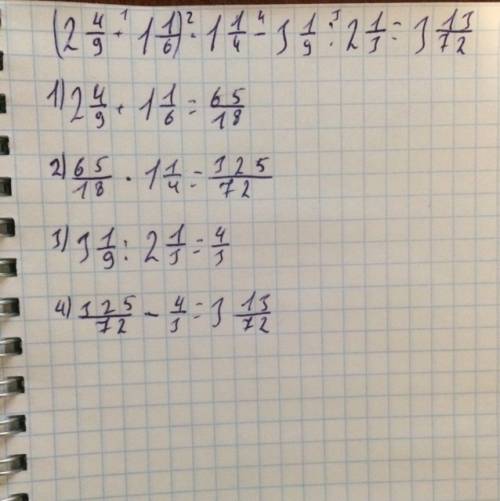 (2 4/9 +¹ 1 1/6) ·² 1 1/4 −⁴ 3 1/9 :³ 2 1/3 = 3 13/72
1) 2 4/9 + 1 1/6 = 65/18
2) 65/18 · 1 1/4 = 325/72
3) 3 1/9 : 2 1/3 = 4/3
4) 325/72 − 4/3 = 3 13/72